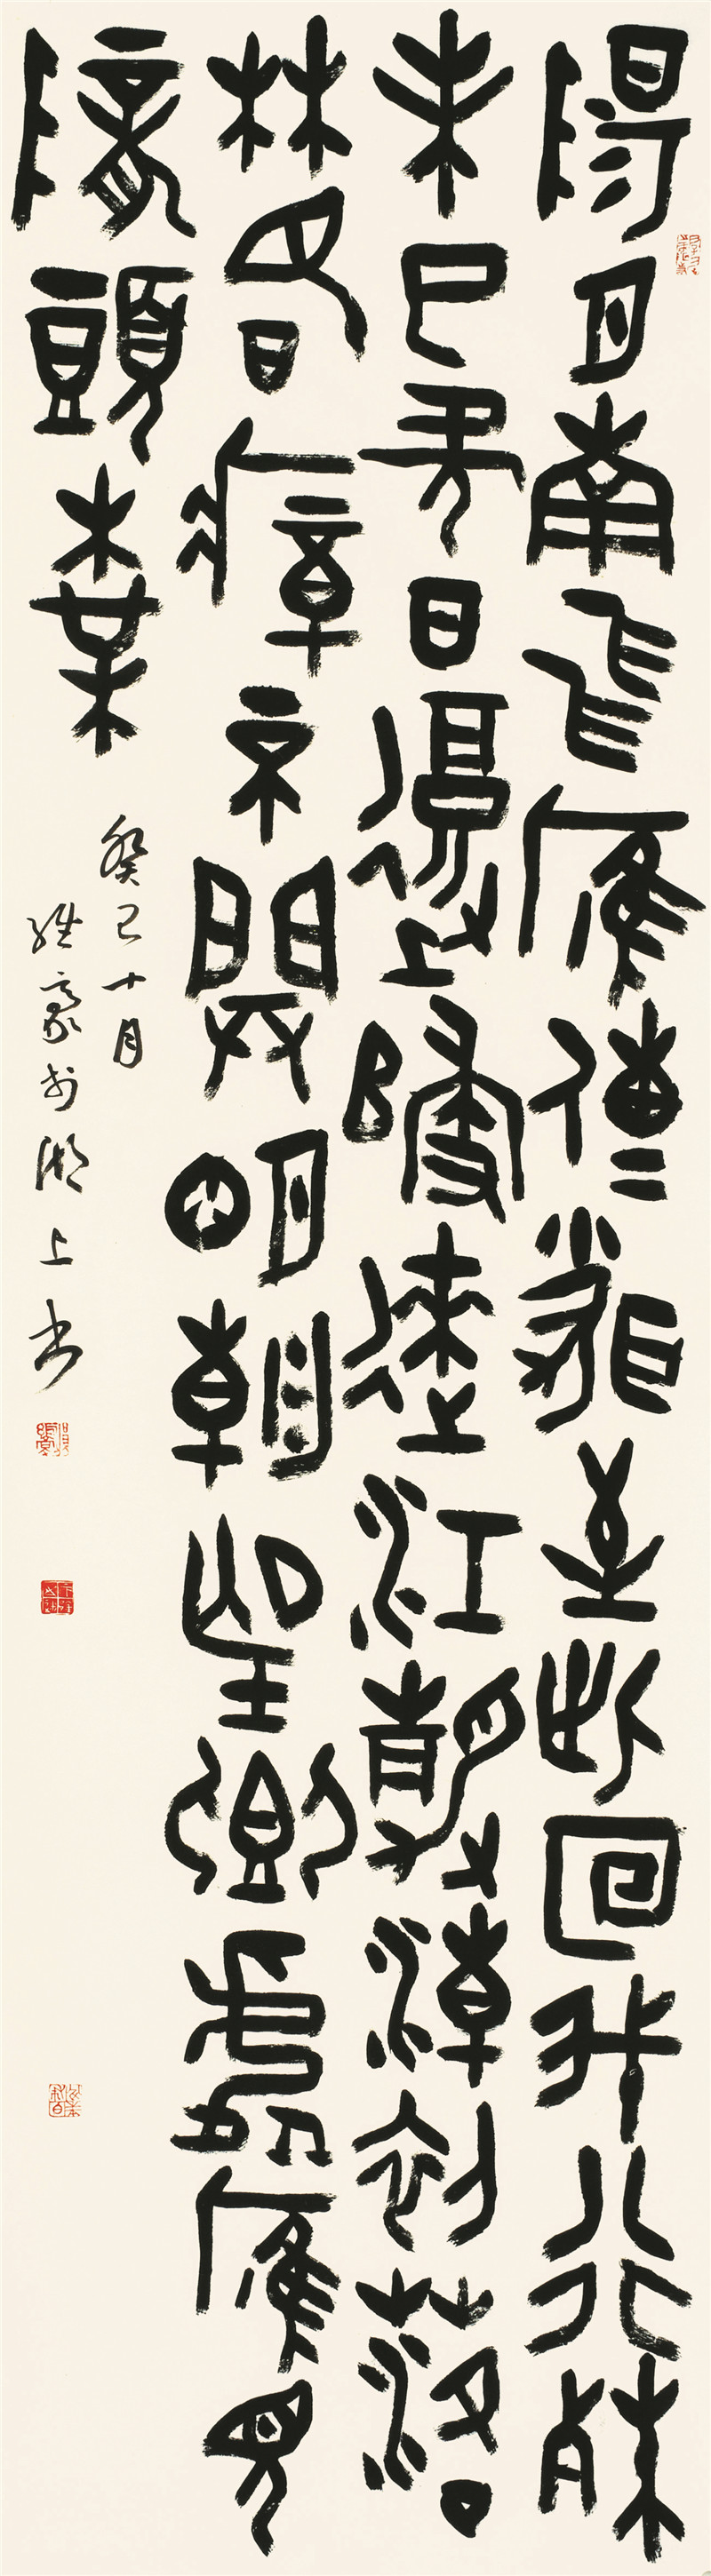 陽月南飛雁傳聞至此回我行殊
未已何日復歸來江靜潮初落
林昏瘴不開明朝望鄉處應見
隴頭楳
癸巳十月
維豪於湖上書